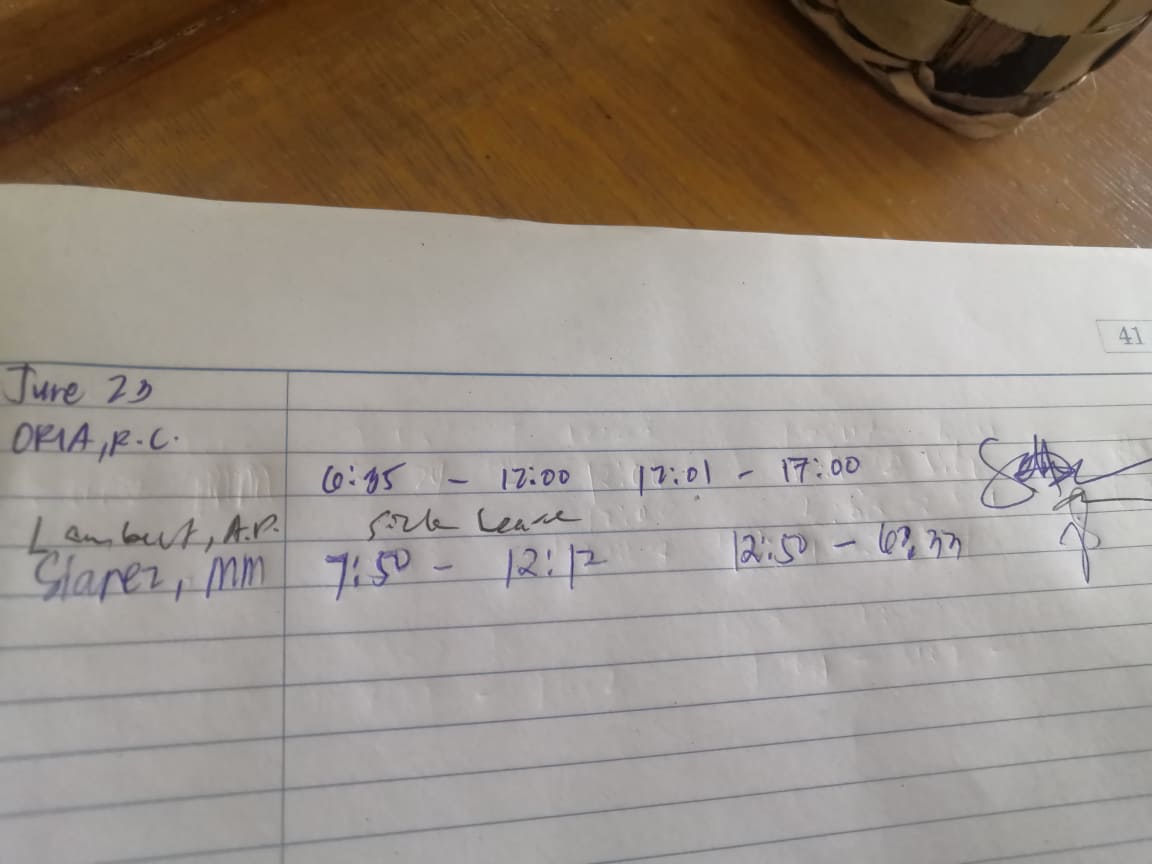 41
June 23
ORIA, R.C.
6:35 - 12:00 12:01 - 17:00
Lambert, A.P. Sick Leave
MM 7:50 - 12:12 12:50 -